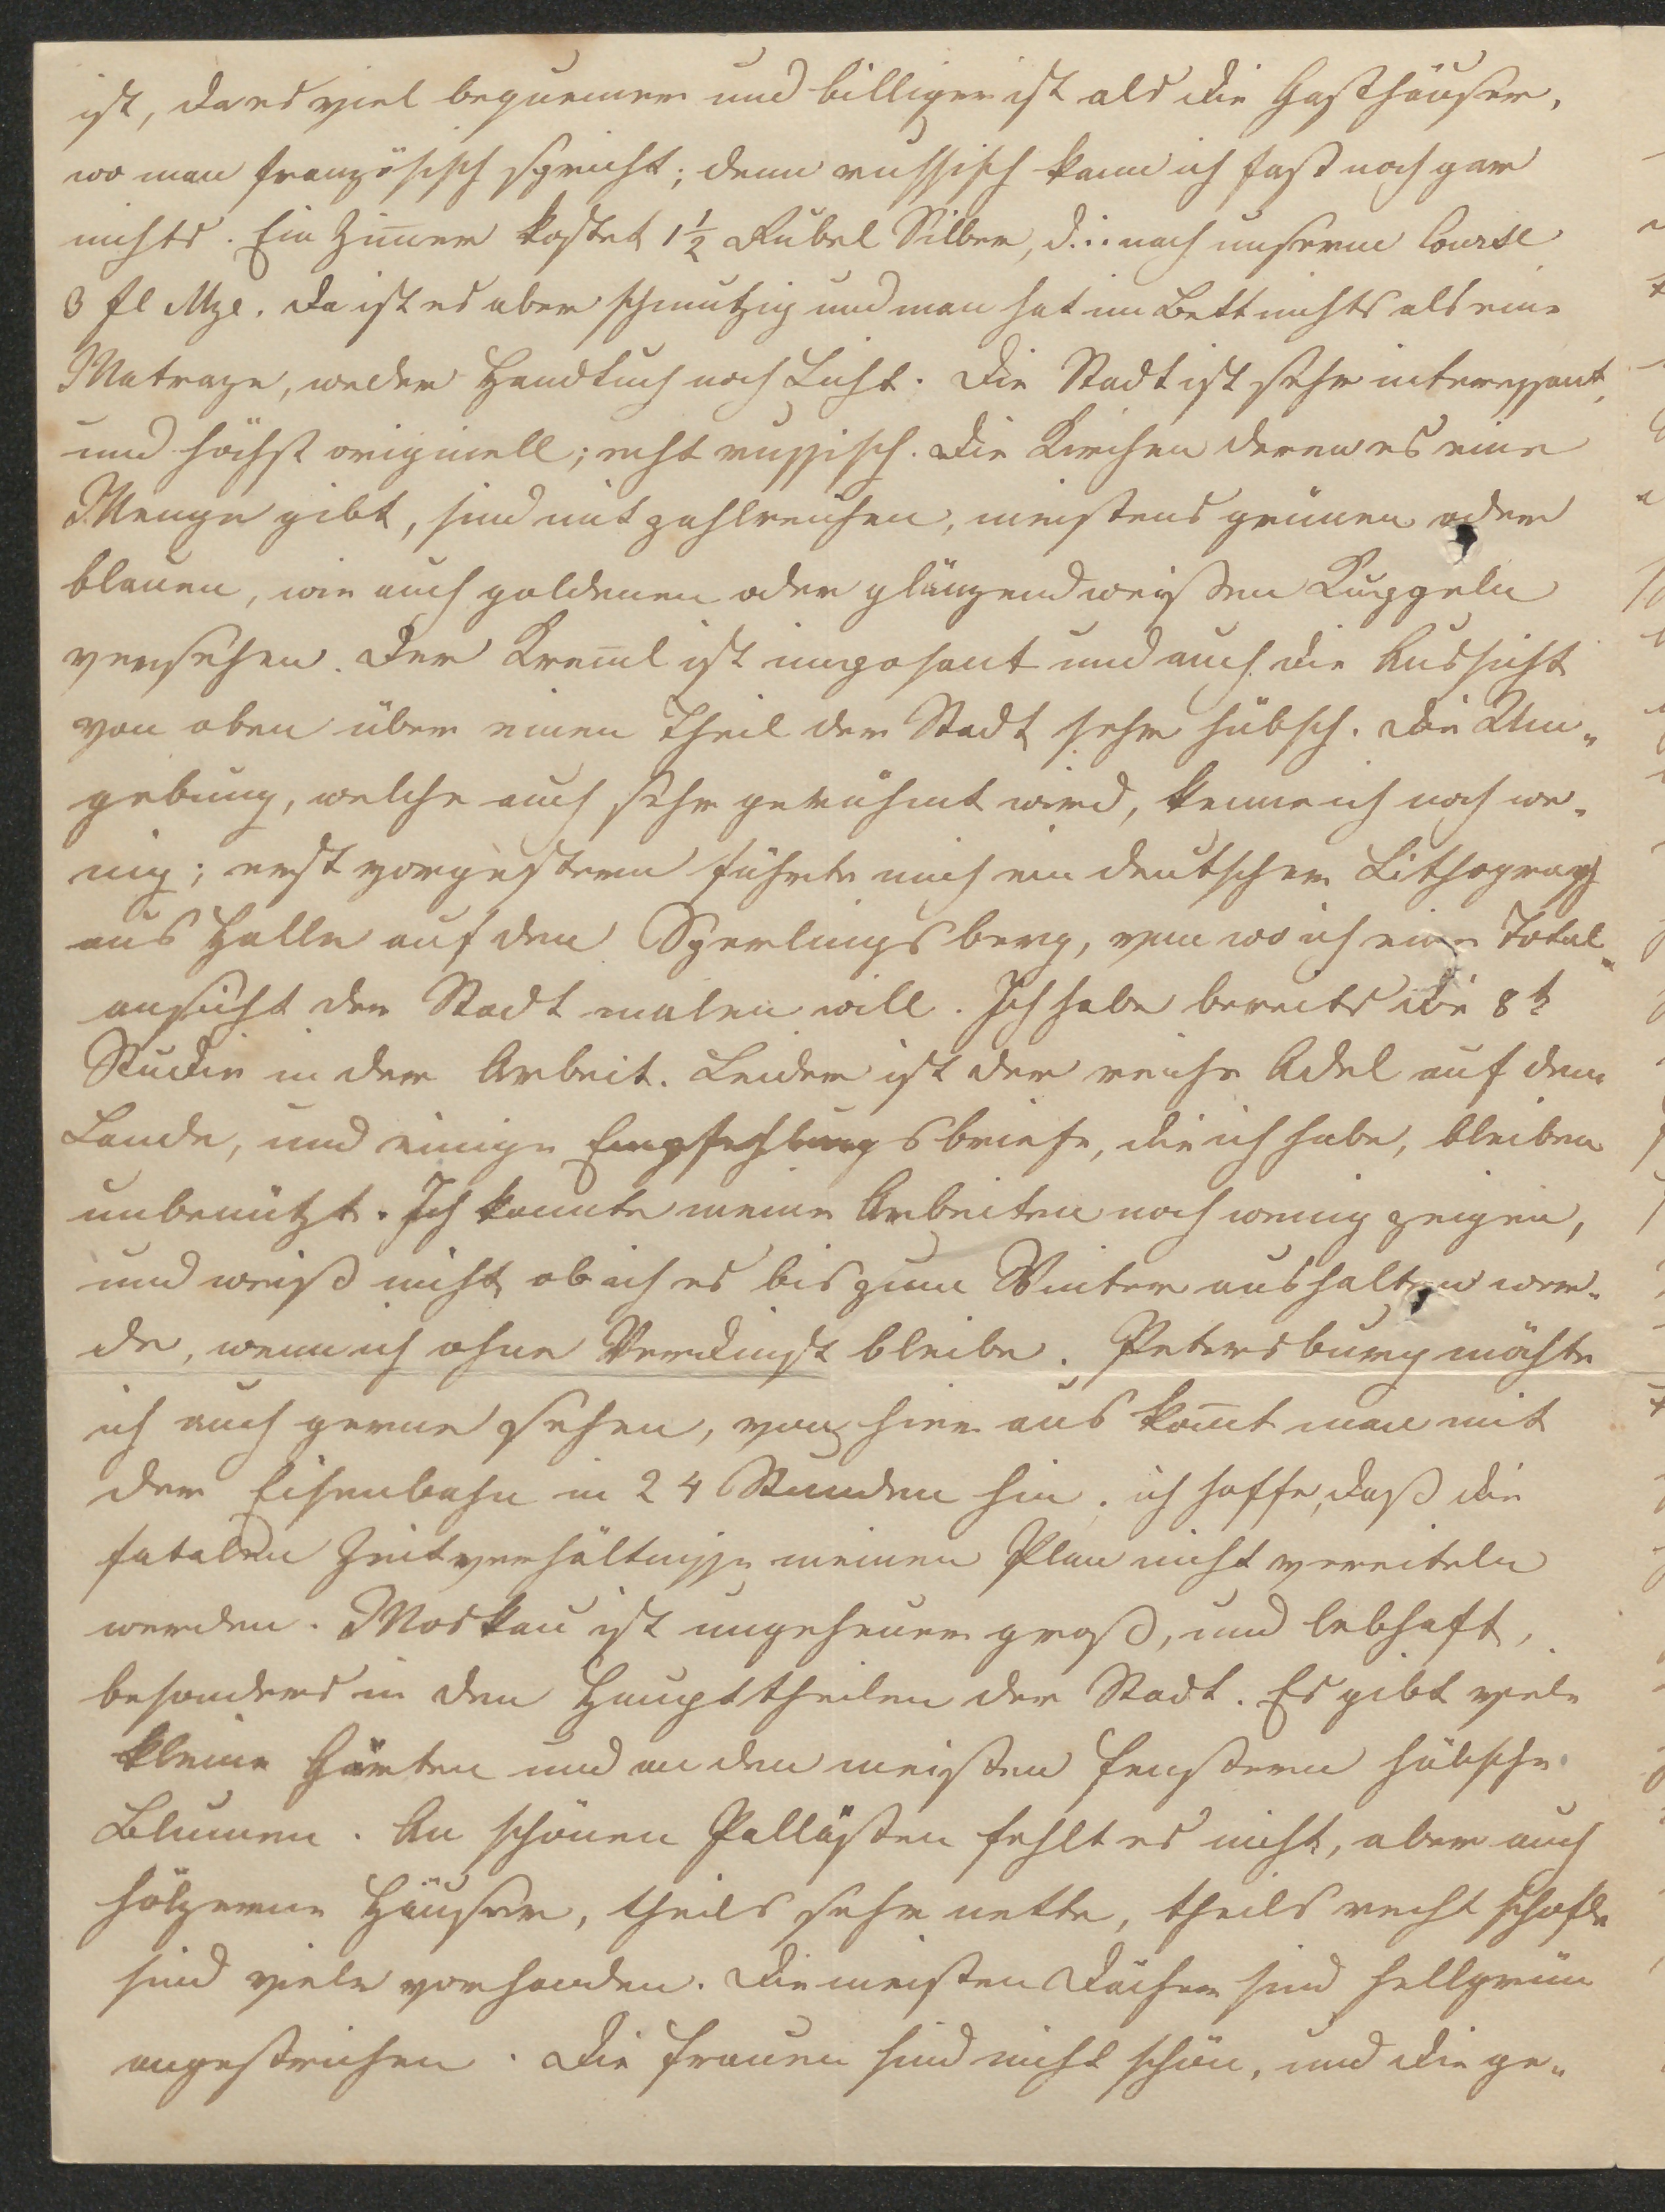 ist, da es viel bequemer und billiger ist als die Gasthäuser,
wo man französisch spricht; denn russisch kann ich fast noch gar
nichts. Ein Zim̅er kostet 1½ Rubel Silber, d.i. nach unserm Course
3 fl Mze. Da ist es aber schmutzig und man hat im Bett nichts als eine
Matraze, weder Handtuch noch Licht. Die Stadt ist sehr interessant,
und höchst originell; echt russisch. Die Kirchen deren es eine
Menge gibt, sind mit zahlreichen, meistens grünen oder
blauen, wie auch goldenen oder glänzend weißen Kuppeln
versehen. Der Krem̅l ist imposant und auch die Aussicht
von oben über einen Theil der Stadt sehr hübsch. Die Um„
gebung, welche auch sehr gerühmt wird, kenne ich noch we„
nig; erst vorgestern führte mich ein deutscher Lithograph
aus Halle auf den Sperlingsberg, von wo ich eine Total„
ansicht der Stadt malen will. Ich habe bereits die 8t
Studie in der Arbeit. Leider ist der reiche Adel auf dem
Lande, und einige Empfehlungsbriefe, die ich habe, bleiben
unbenützt. Ich konnte meine Arbeiten noch wenig zeigen,
und weiß nicht ob ich es bis zum Winter aushalten wer„
de, wenn ich ohne Verdinst bleibe. Petersburg möchte
ich auch gerne sehen, von hier aus kom̅t man mit
der Eisenbahn in 24 Stunden hin, ich hoffe, daß die
fatalen Zeitverhältnisse meinen Plan nicht vereiteln
werden. Moskau ist ungeheuer groß, und lebhaft,
besonders in den Haupttheilen der Stadt. Es gibt viele
kleine Gärten und an den meisten Fenstern hübsche
Blumen. An schönen Pallästen fehlt es nicht, aber auch
hölzerne Häuser, theils sehr nette, theils recht schofle
sind viele vorhanden. Die meisten Dächer sind hellgrün
angestrichen. Die Frauen sind nicht schön, und die ge„